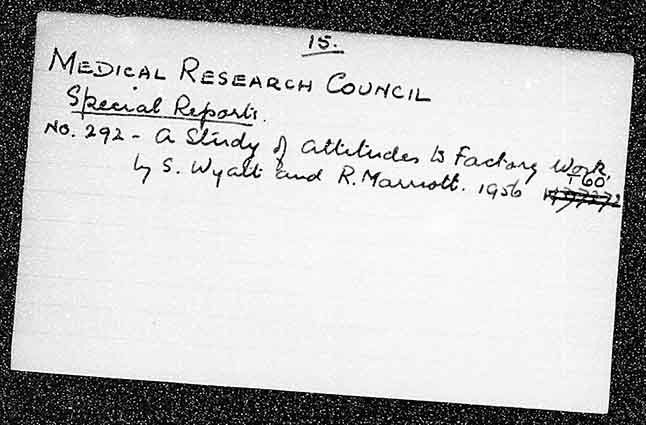 15.
MEDICAL RESEARCH COUNCIL
Special Reports.
No. 292 - A Study of attitudes to Factory Work.
by S. Wyatt and R. Marriott. 1956 T60